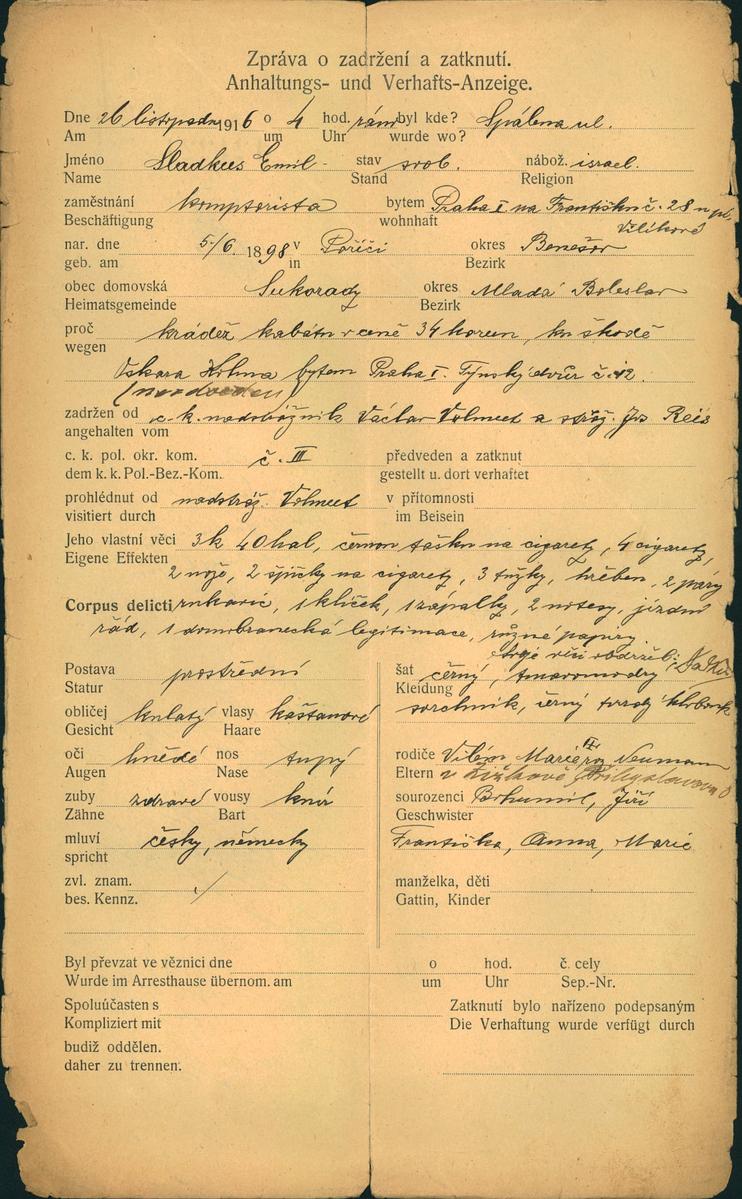 Zpráva o zadržení a zatknutí.
Anhaltungs- und Verhafts-Anzeige.
Dne 26 listopadu 1916 o 4 hod. ráno byl kde? Spálena ul.
Am um Uhr wurde wo?
Jméno Sladkus Emil - stav svob. nábož. israel.
Name Stand Religion
zaměstnání komptorista bytem Praha I na Františku č. 28 n
Beschäftigung wohnhaft
nar. dne 5/6. 1898 v Poříčí okres Benešov
geb. am in Bezirk
obec domovská Sukorady okres Mladá Boleslav
Heimatsgemeinde Bezirk
proč krádež kabátu v ceně 34 korun, ku škodě
wegen
Oskara bytem Praha I. Týnský dvůr č. 12.
zadržen od c. k. nadstrážník Václav Volmut a stráž. Jos Reis
angehalten vom
c. k. pol. okr. kom. č. III předveden a zatknut
dem k. k. Pol.-Bez.-Kom. gestellt u. dort verhaftet
prohlédnut od nadstráž. Volmut v přítomnosti
visitiert durch im Beisein
Jeho vlastní věci 3 k 40 hal, černou tašku na cigarety, 4 cigarety,
Eigene Effekten
2 nože, 2 špičky na cigarety, 3 tužky, hřeben, 2 páry
Corpus delicti rukavic, 1 klíček, 1 zápalky, 2 notesy, jízdní
řád, 1 domobranecká legitimace, různé papíry.
svoje věci obdržel:
Postava prostřední šat černý, tmavomodrý
Statur Kleidung
svrchník, černý tvrdý klobouk
obličej kulatý vlasy kaštanové
Gesicht Haare
oči hnědé nos tupý rodiče Vilém Marie roz Neuman
Augen Nase Eltern v Žižkově
zuby zdravé vousy knír sourozenci Bohumil, Jiří
Zähne Bart Geschwister
mluví česky, německy Františka, Anna, Marie
spricht
zvl. znam. ./ manželka, děti
bes. Kennz. Gattin, Kinder
Byl převzat ve věznici dne o hod. č. cely
Wurde im Arresthause übernom. am um Uhr Sep.-Nr.
Spoluúčasten s Zatknutí bylo nařízeno podepsaným
Kompliziert mit Die Verhaftung wurde verfügt durch
budiž oddělen.
daher zu trennen.